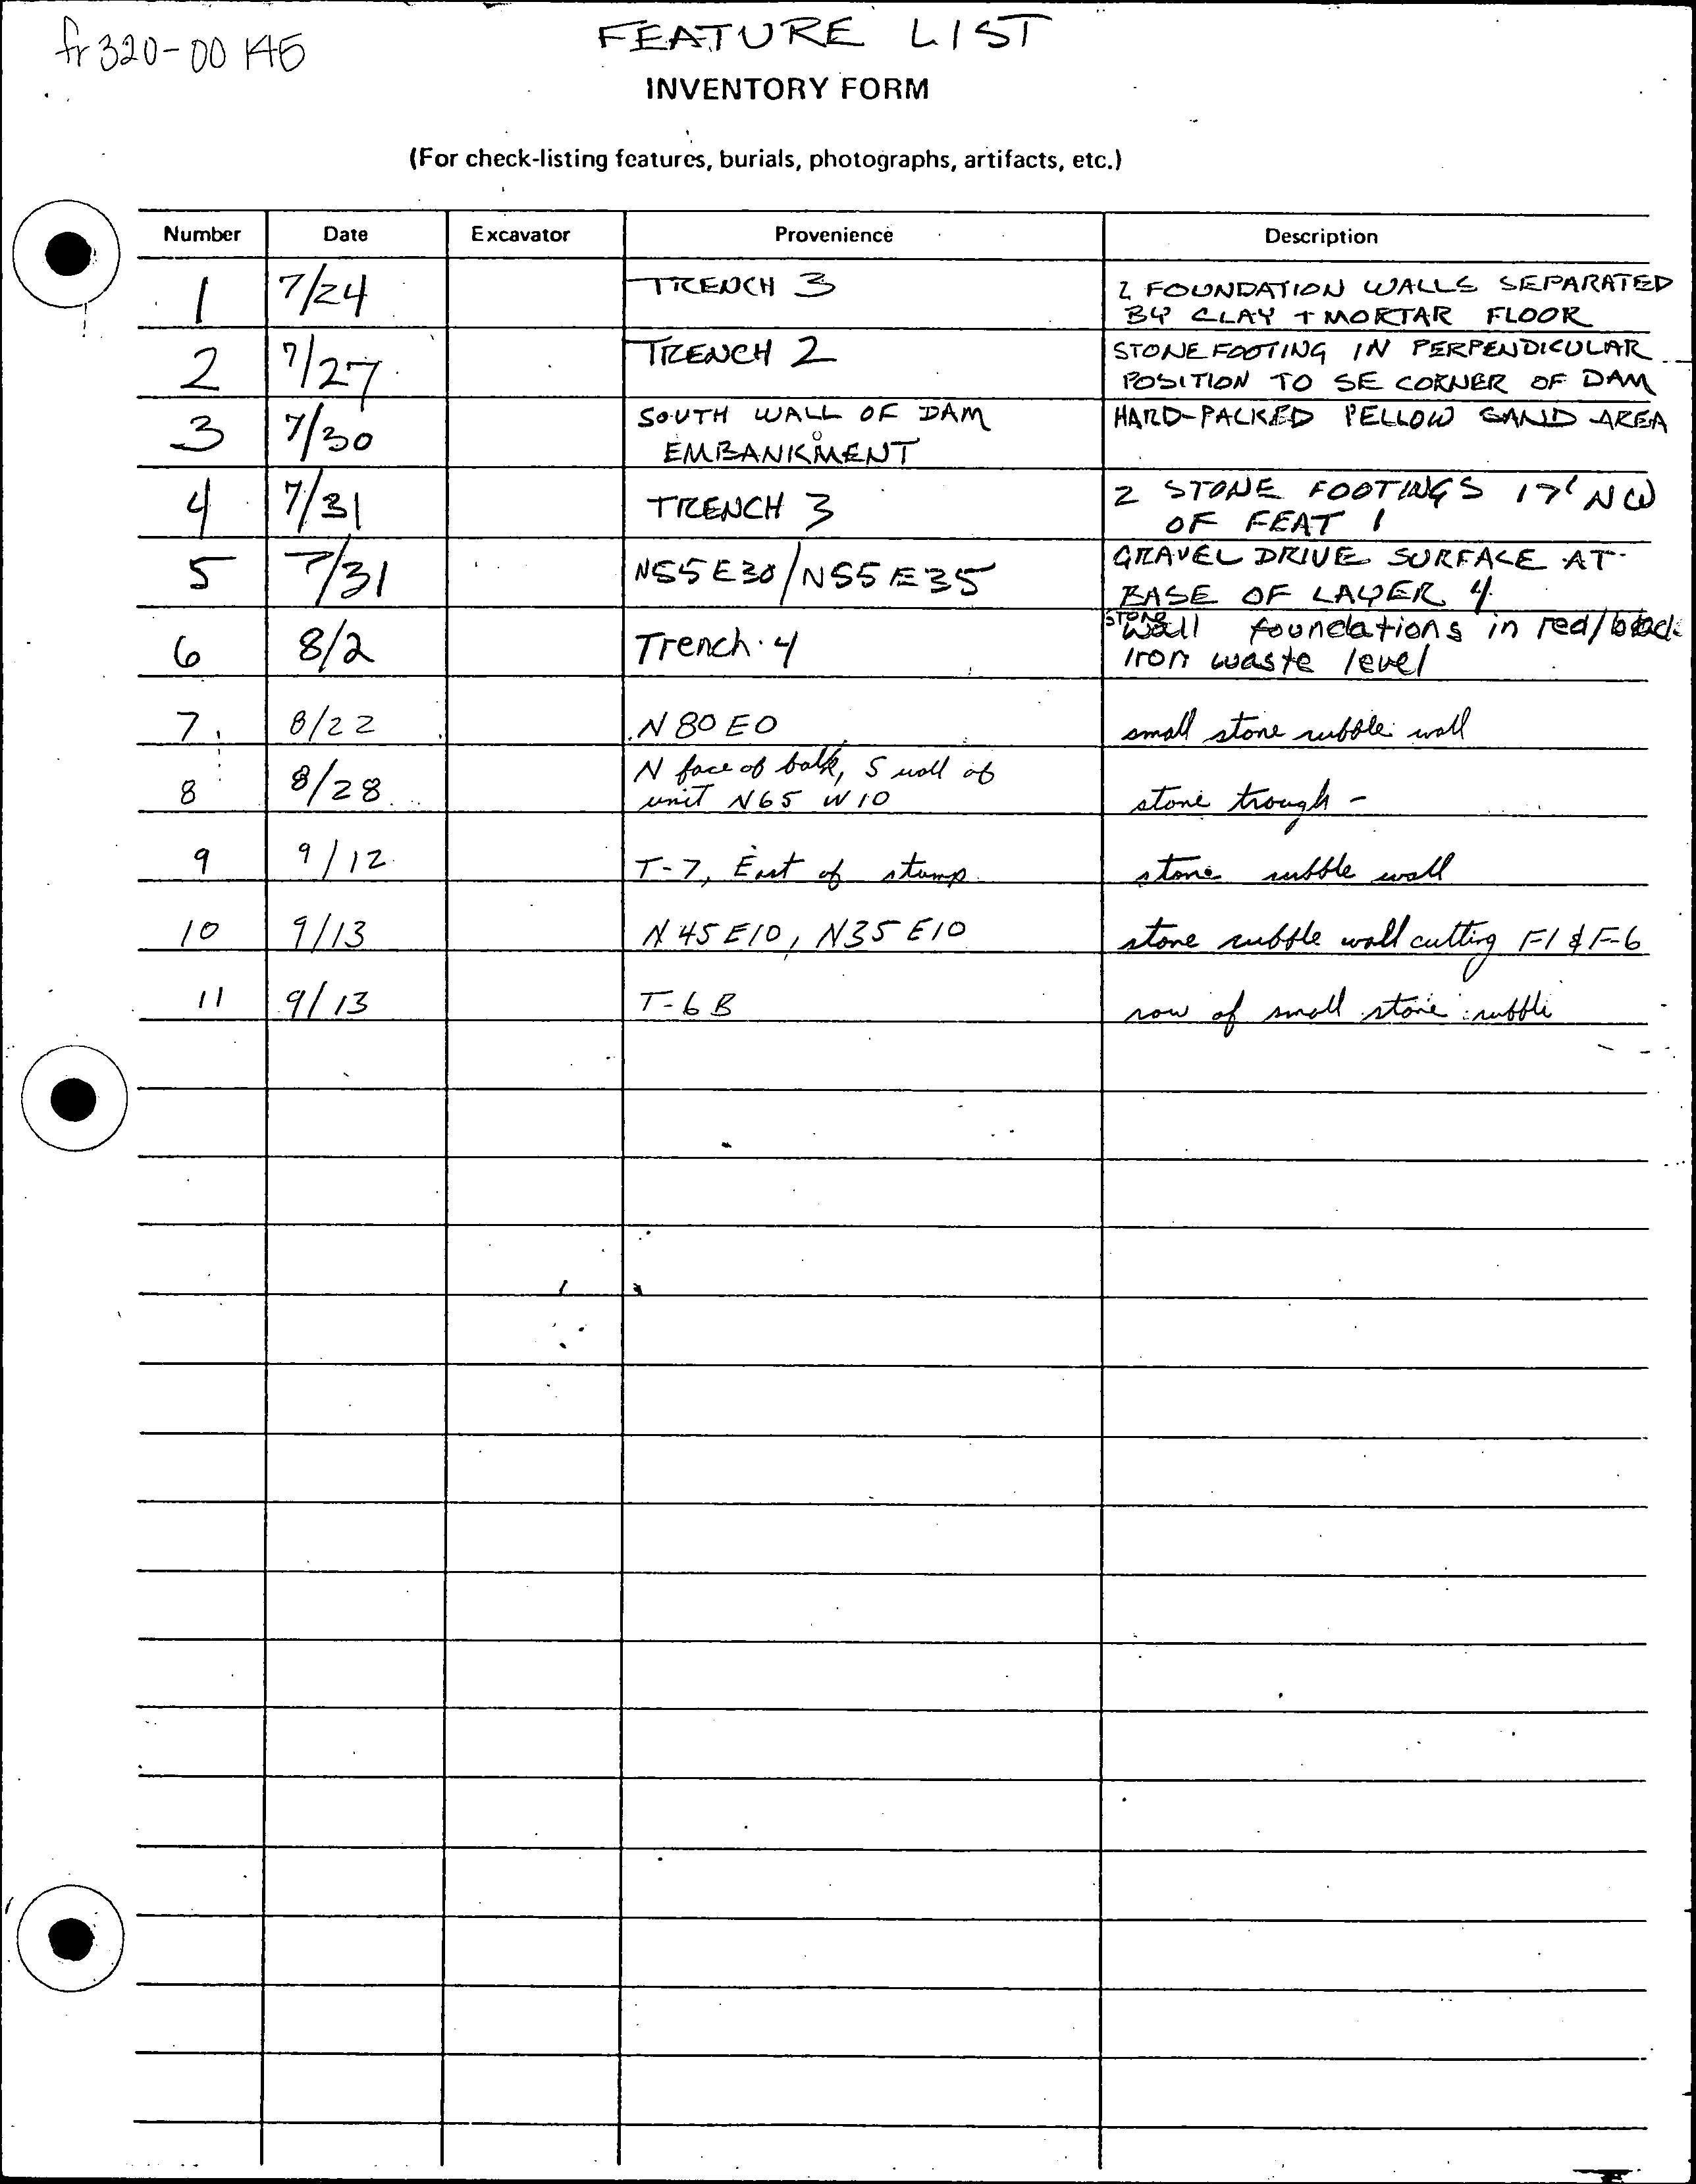 fr 320-00146
FEATURE LIST
INVENTORY FORM
(For check-listing features, burials, photographs, artifacts, etc.)
Number Date Excavator Provenience Description
1 7/24 TRENCH 3 2 FOUNDATION WALLS SEPARATED
BY CLAY + MORTAR FLOOR
2 7/27 TRENCH 2 STONE FOOTING IN PERPENDICULAR
POSITION TO SE CORNER OF DAM
3 7/30 SOUTH WALL OF DAM HARD-PACKED YELLOW SAND AREA
EMBANKMENT
4 7/31 TRENCH 3 2 STONE FOOTINGS 17' NW
OF FEAT 1
5 7/31 N55E30/N55E35 GRAVEL DRIVE SURFACE AT
BASE OF LAYER 4
6 8/2 Trench 4 STONE Wall foundations in red/black
iron waste level
7 8/22 N80E0 small stone rubble wall
8 8/28 N face of balk, S wall of
unit N65 W10 stone trough -
9 9/12 T-7, East of stump stone rubble wall
10 9/13 N45E10, N35E10 stone rubble wall cutting F-1 & F-6
11 9/13 T-6B row of small stone rubble